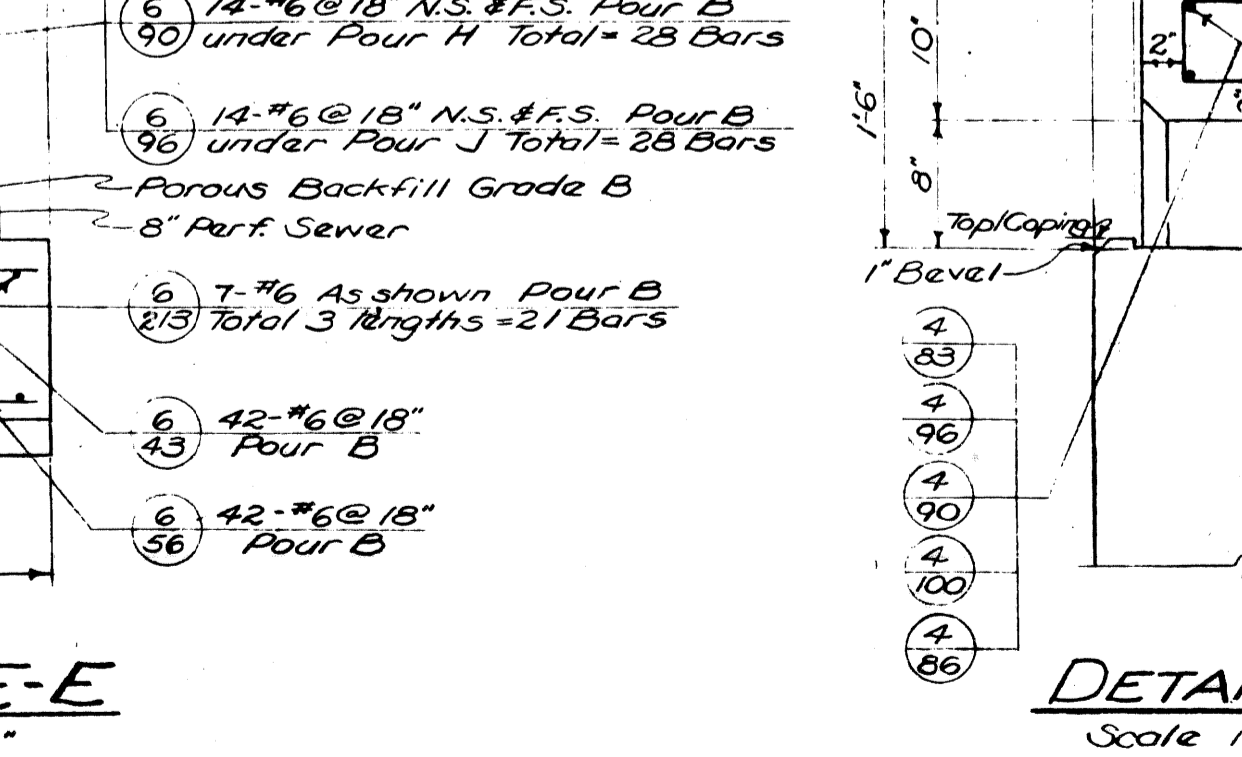 6 14-#6@18" N.S. & F.S. Pour B
90 under Pour H Total = 28 Bars
6 14-#6@18" N.S. & F.S. Pour B
96 under Pour J Total = 28 Bars
Porous Backfill Grade B
8" Perf. Sewer
6 7-#6 As shown Pour B
213 Total 3 lengths = 21 Bars
6 42-#6@18"
43 Pour B
6 42-#6@18"
56 Pour B
E-E
10"
2"
1'-6"
8"
Top/Coping
1" Bevel
4
83
4
96
4
90
4
100
4
86
DETA
Scale 1